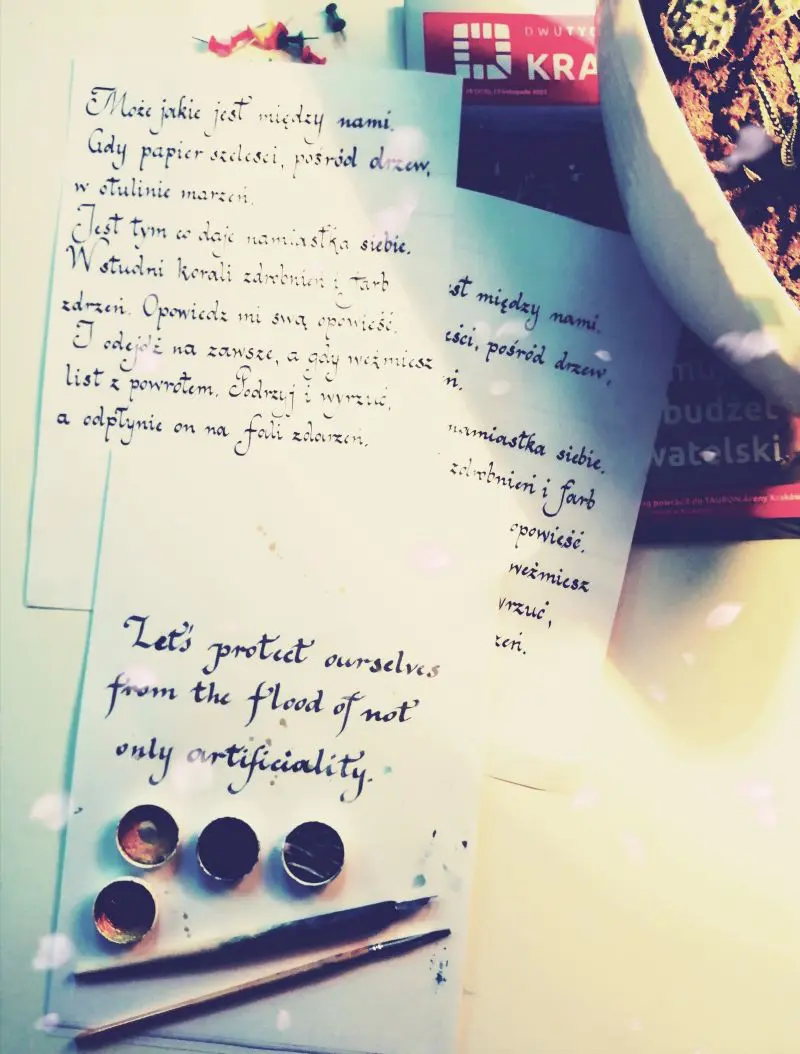 Może jakie jest między nami.
Gdy papier szeleści, pośród drzew,
w otulinie marzeń.
Jest tym co daje namiastka siebie.
W studni korali zdrobnień i farb
zdrzeń. Opowiedz mi swą opowieść.
I odejdź na zawsze, a gdy weźmiesz
list z powrotem. Podrzyj i wyrzuć,
a odpłynie on na fali zdarzeń.
st między nami.
eści, pośród drzew,
ń.
namiastka siebie.
zdrobnień i farb
opowieść.
weźmiesz
yrzuć,
zeń.
Let's protect ourselves
from the flood of not
only artificiality.
DWUTYG
KRA
budżet
watelski